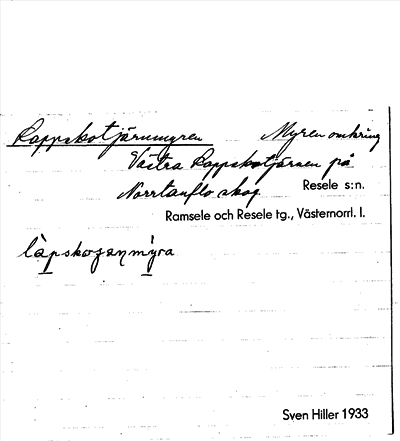 Lappskotjärnmyren Myren omkring
Västra Lappskotjärnen på
Norrtanflo skog Resele s:n.
Ramsele och Resele tg., Västernorrl. l.
làpskoʒənmỳra
Sven Hiller 1933